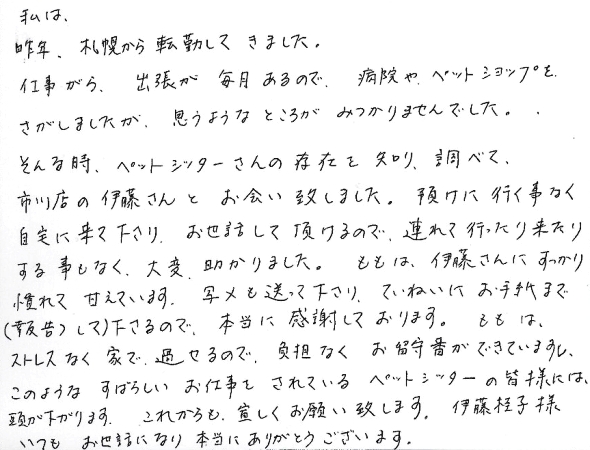 私は、
昨年、札幌から転勤して きました。
仕事がら、出張が 毎月 あるので、病院や、ペットショップを、
さがしましたが、思うような ところが みつかりませんでした。
そんな時、ペットシッターさんの 存在を 知り、調べて、
市川店の 伊藤さんと お会い 致しました。預けに 行く事なく
自宅に来て下さり、お世話して 頂けるので、連れて 行ったり 来たり
する 事もなく、大変、助かりました。ももは、伊藤さんに すっかり
慣れて 甘えています。写メも 送って 下さり、ていねいに お手紙まで
(報告)して)下さるので、本当に 感謝して おります。ももは、
ストレスなく 家で 過せるので、負担なく お留守番が できていますし、
このような すばらしい お仕事を されている ペットシッターの 皆様には、
頭が下がります。これからも、宜しく お願い 致します。伊藤桂子様
いつも お世話になり 本当に ありがとう ございます。